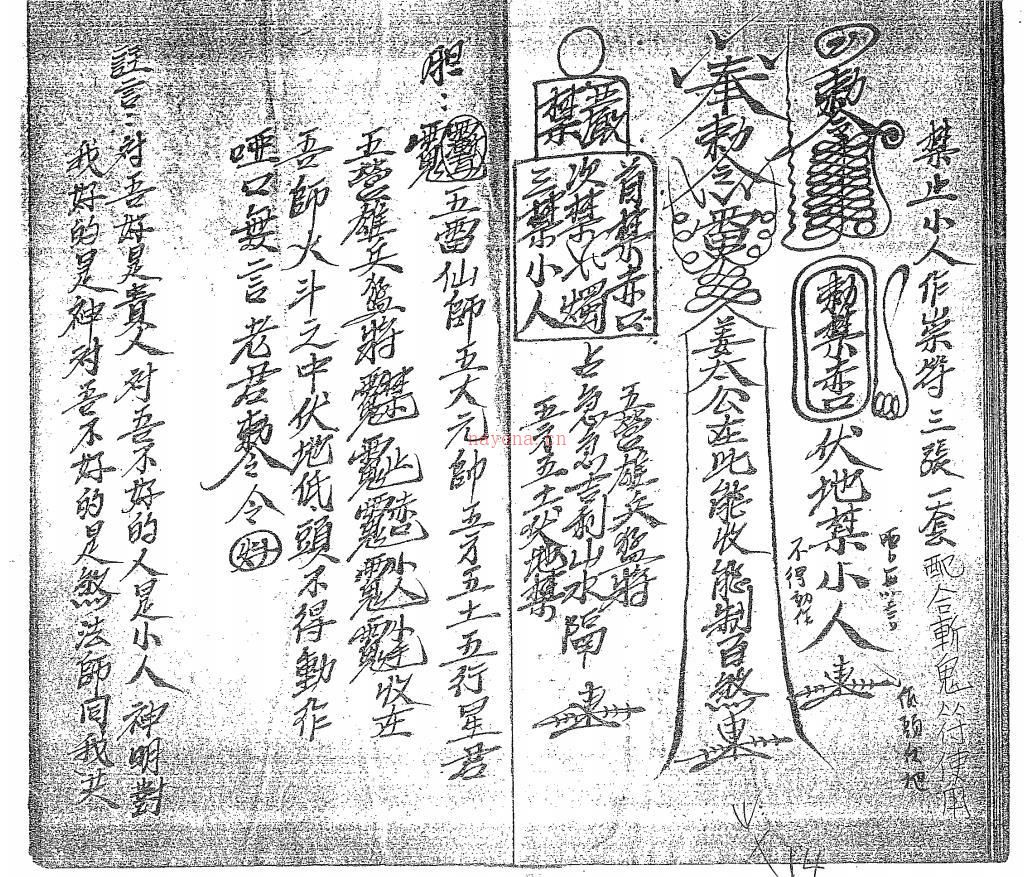 禁止小人作祟符三張一套配合斬鬼符使用
勅令
勅禁赤口
伏地禁小人
啞口無言
不得動作
低頭伏地
奉勅令
姜太公在此能收能制百煞
禁
首禁赤口
次禁火燭
三禁小人
五營雄兵猛將
占急急吉利山水隔
五方五土伏地禁
胆：
五雷仙師五大元帥五方五土五行星君
五營雄兵猛將
收在
吾師火斗之中伏地低頭不得動作
啞口無言老君勅令令
註言：对吾好是貴人对吾不好的人是小人神明對
我好的是神对吾不好的是煞法師同我共
nayona.cn
14